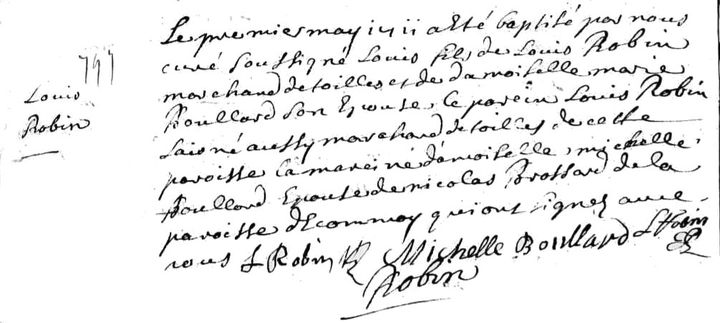 797
Louis
Robin
Le premier may 1711 a Eté baptisé par nous
curé soussigné Louis fils de Louis Robin
marchand de toilles et de damoiselle marie
Boullard son Epouse, le parein Louis Robin
laisné aussy marchand de toilles de cette
paroisse la mareine damoiselle michelle
Boullard Epouse de nicolas Brossard de la
paroisse d'Ecommoy qui ont signez avec
nous L Robin Michelle Boullard L Robin
Robin